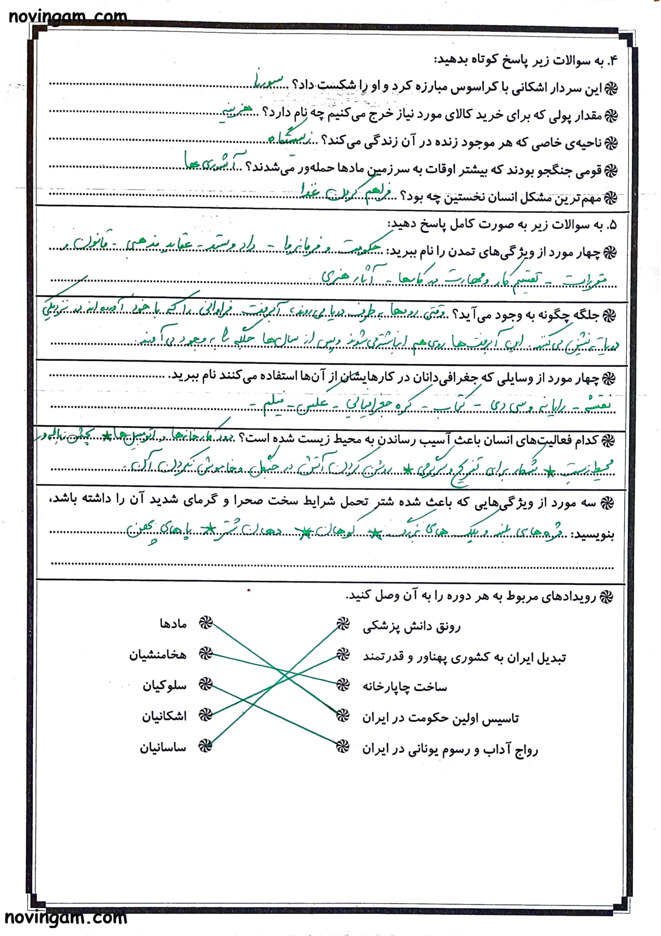 novingam.com
۴. به سوالات زیر پاسخ کوتاه بدهید:
این سردار اشکانی با کراسوس مبارزه کرد و او را شکست داد؟ سورنا
مقدار پولی که برای خرید کالای مورد نیاز خرج می‌کنیم چه نام دارد؟ هزینه
ناحیه‌ی خاصی که هر موجود زنده در آن زندگی می‌کند؟ زیستگاه
قومی جنگجو بودند که بیشتر اوقات به سرزمین مادها حمله‌ور می‌شدند؟ آشوری ها
مهم‌ترین مشکل انسان نخستین چه بود؟ فراهم کردن غذا
۵. به سوالات زیر به صورت کامل پاسخ دهید:
چهار مورد از ویژگی‌های تمدن را نام ببرید: حکومت و فرمانروا - داد و ستد - عقاید مذهبی - قانون و
مقررات - تقسیم کار و مهارت در کارها - آثار هنری
جلگه چگونه به وجود می‌آید؟ وقتی رودها به طرف دریا می‌روند، آبرفت فراوانی را که با خود آورده‌اند در نزدیکی
دریا ته نشین می‌کنند. این آبرفت‌ها روی هم انباشته می‌شوند و پس از سال‌ها جلگه به وجود می‌آیند.
چهار مورد از وسایلی که جغرافی‌دانان در کارهایشان از آن‌ها استفاده می‌کنند نام ببرید.
نقشه - رایانه و سی دی - کتاب - کره جغرافیایی - عکس - فیلم -
کدام فعالیت‌های انسان باعث آسیب رساندن به محیط زیست شده است؟ دود کارخانه‌ها و اتومبیل‌ها * پخش زباله در
محیط زیست * شکار برای تفریح و سرگرمی * روشن کردن آتش در جنگل و خاموش نکردن آن.
سه مورد از ویژگی‌هایی که باعث شده شتر تحمل شرایط سخت صحرا و گرمای شدید آن را داشته باشد،
بنویسید: مژه های بلند و پلک های بزرگ * کوهان * دهان شتر * پاهای پهن
رویدادهای مربوط به هر دوره را به آن وصل کنید.
رونق دانش پزشکی مادها
تبدیل ایران به کشوری پهناور و قدرتمند هخامنشیان
ساخت چاپارخانه سلوکیان
تاسیس اولین حکومت در ایران اشکانیان
رواج آداب و رسوم یونانی در ایران ساسانیان
novingam.com